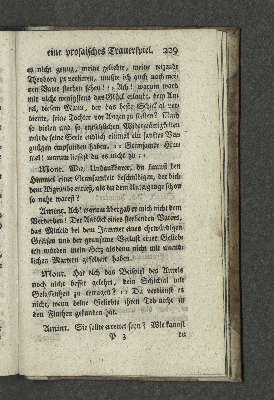 eine prosaisches Trauerspiel. 229
es nicht genug, meine geliebte, meine reizende
Theodora zu verlieren, mußte ich auch noch mei-
nen Vater sterben sehen! :: Ach! warum ward
mir nicht wenigstens das Glück erlaubt, dem Am-
rel, diesem Mann, der das beste Schicksal ver-
diente, seine Tochter vor Augen zu stellen? Nach
so vielen und so entsetzlichen Widerwärtigkeiten
würde seine Seele endlich einmal ein sanftes Ver-
gnügen empfunden haben. :: Grausamer Him-
mel! warum ließest du es nicht zu ::
Mont. Wie, Undankbarer, du kannst den
Himmel einer Grausamkeit beschuldigen, der dich
dem Abgrunde entriß, als du dem Untergange schon
so nahe warest?
Amint. Ach! warum übergab er mich nicht dem
Verderben! Der Anblick eines sterbenden Vaters,
das Mitleid bei dem Jammer eines ehrwürdigen
Greisen und der grausame Verlust einer Gelieb-
ten würden mein Herz alsdann nicht mit unend-
lichen Martern gefoltert haben.
Mont. Hat dich das Beispiel des Amrels
noch nicht besser gelehrt, dein Schicksal mit
Gelassenheit zu ertragen? :: Du verdienst es
nicht, wenn deine Geliebte ihren Tod nicht in
den Fluthen gefunden hat.
Amint. Sie sollte errettet seyn? Wie kannst
P 3 du